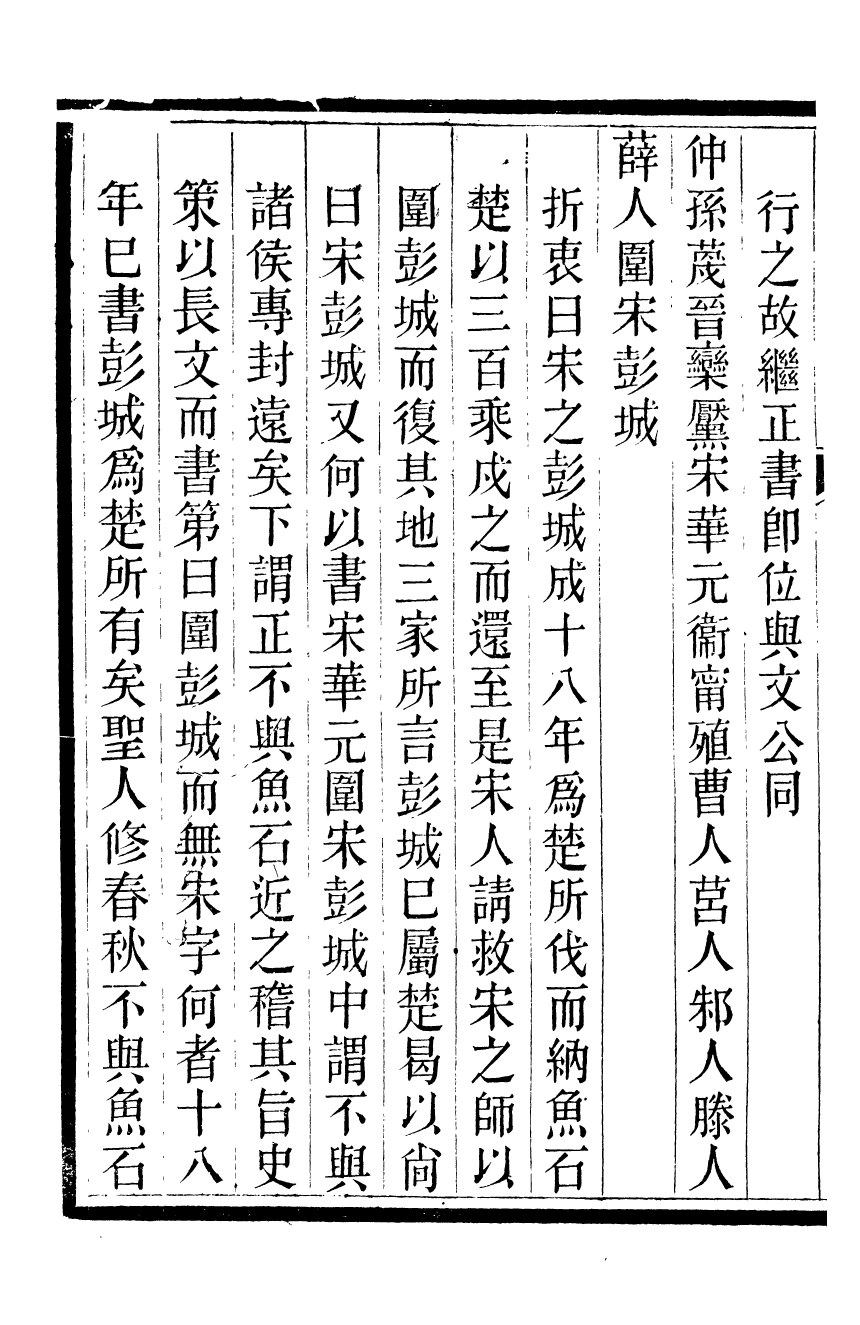 行之故繼正書卽位與文公同
仲孫蔑晉欒黶宋華元衞甯殖曹人莒人邾人滕人
薛人圍宋彭城
折衷曰宋之彭城成十八年爲楚所伐而納魚石
楚以三百乘戍之而還至是宋人請救宋之師以
圍彭城而復其地三家所言彭城巳屬楚曷以尙
曰宋彭城又何以書宋華元圍宋彭城中謂不與
諸侯專封遠矣下謂正不與魚石近之稽其旨史
策以長文而書第曰圍彭城而無宋字何者十八
年巳書彭城爲楚所有矣聖人修春秋不與魚石